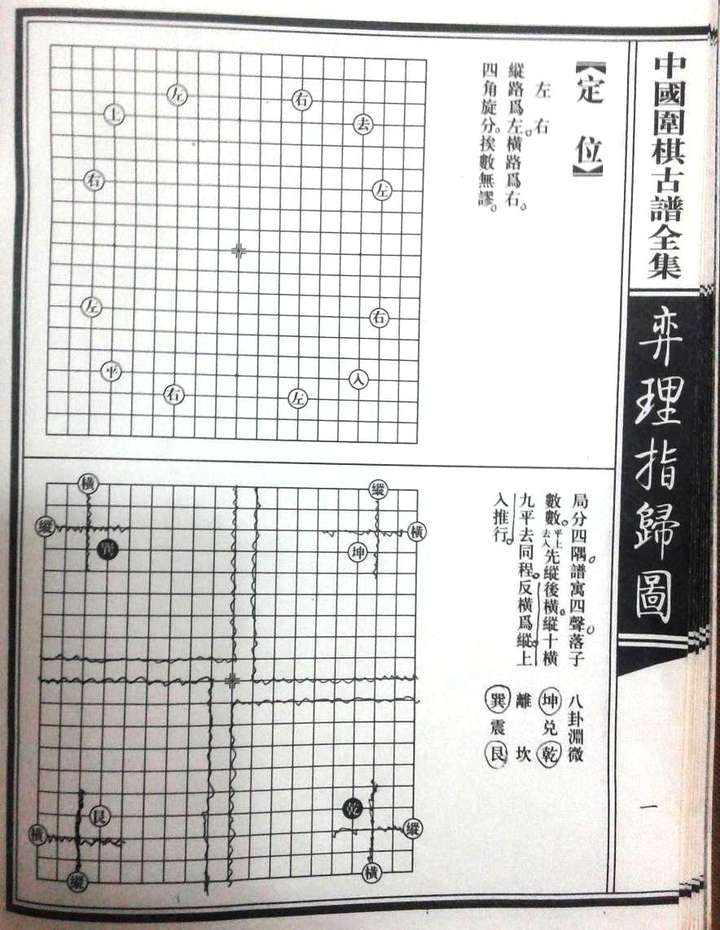 中國圍棋古譜全集
弈理指歸圖
一
【定位】
左右
縱路爲左。橫路爲右。
四角旋分。挨數無謬。
左
右
上
去
右
左
左
右
平
入
右
左
局分四隅。譜寓四聲。落子
數數。平上去入先縱後橫。縱十橫
九平去同程。反橫爲縱。上
入推行。
八卦淵微
坤兌乾
離坎
巽震艮
橫
縱
縱
橫
巽
坤
艮
乾
橫
縱
縱
橫